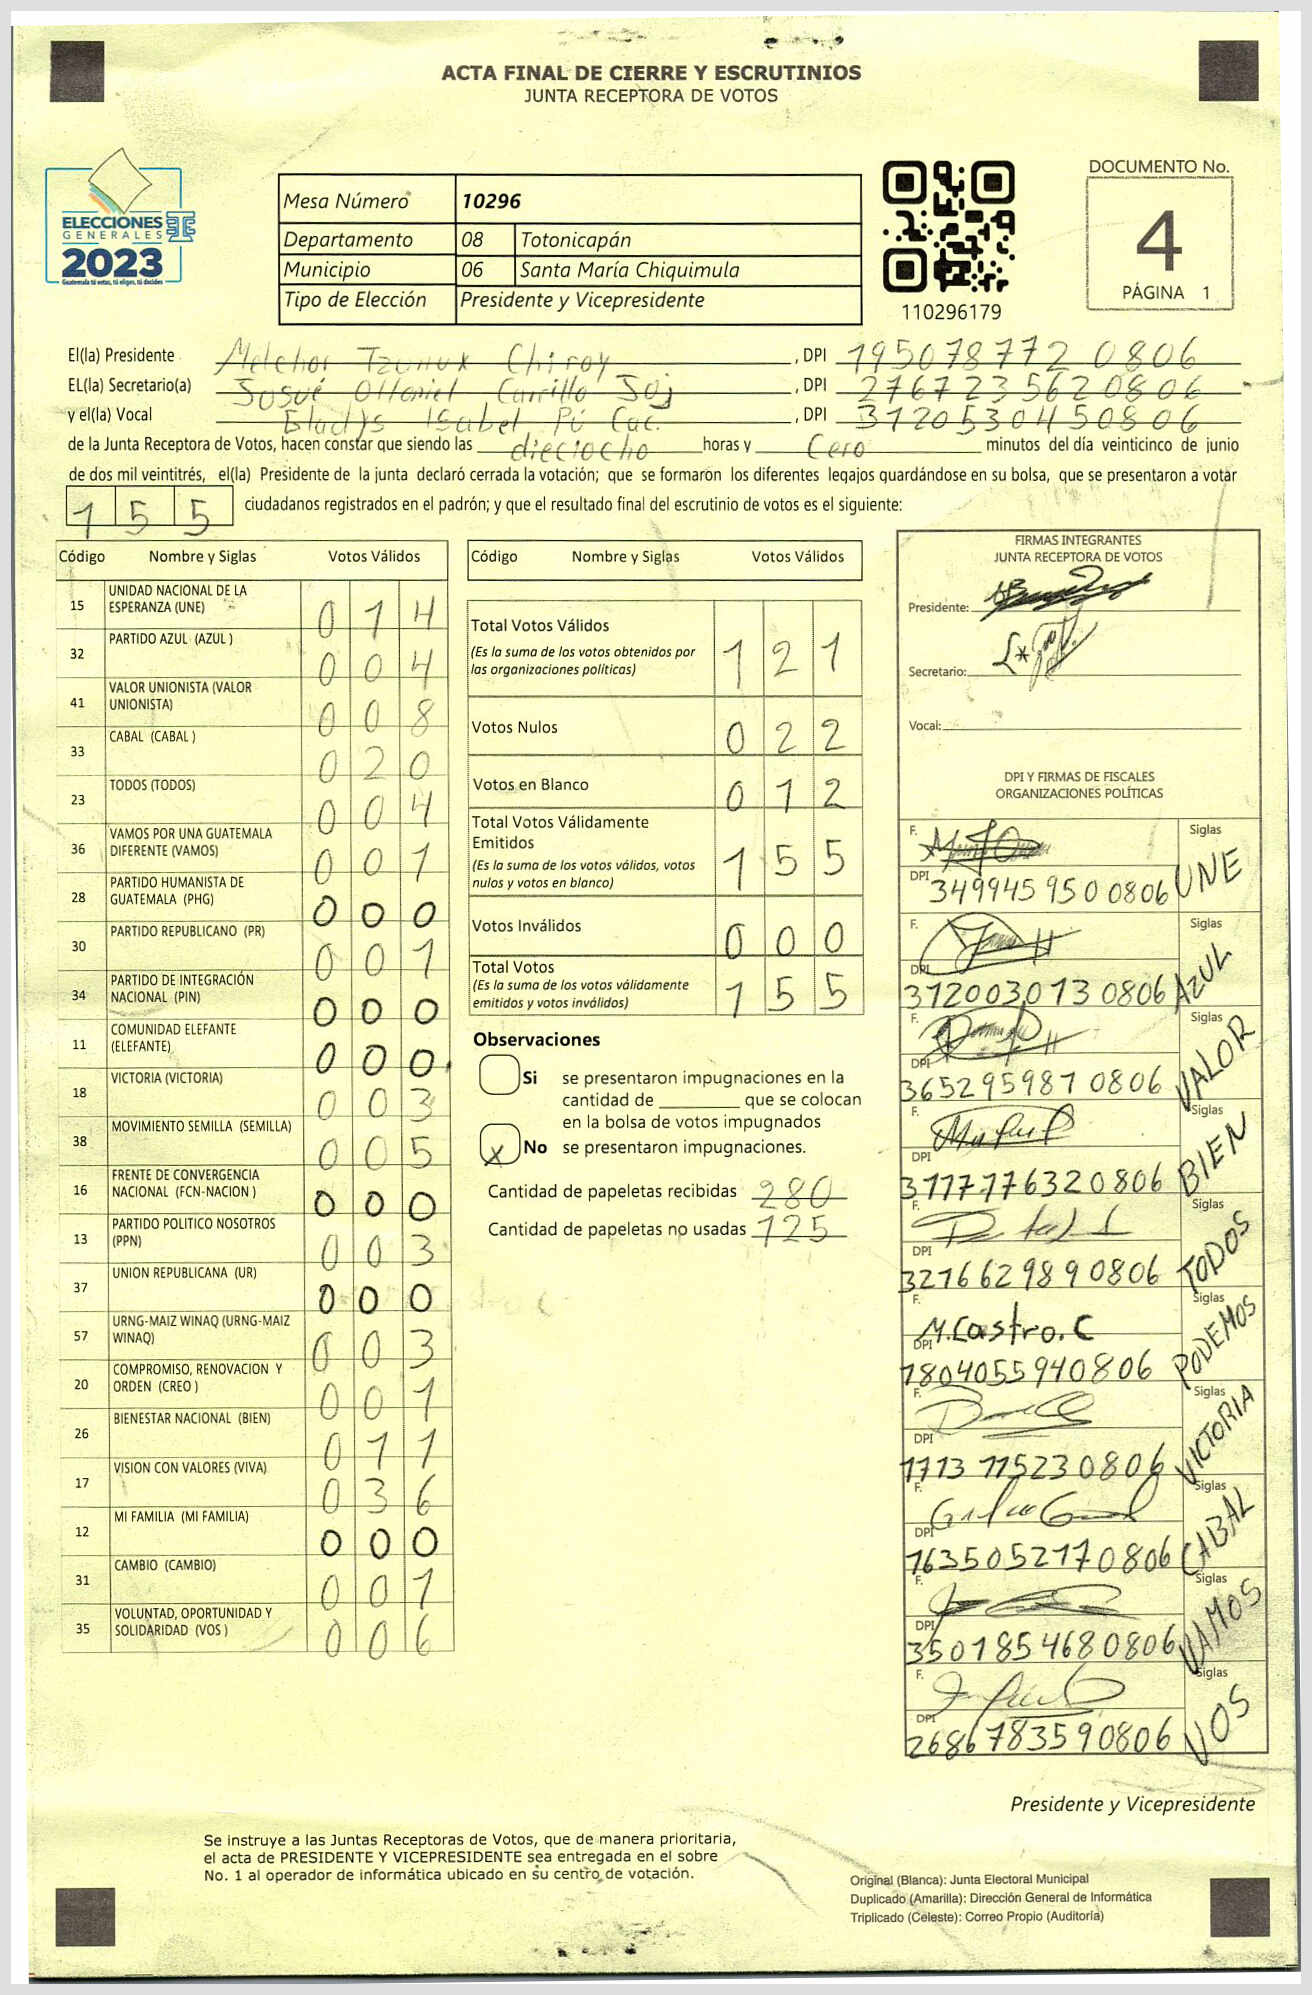 ACTA FINAL DE CIERRE Y ESCRUTINIOS
JUNTA RECEPTORA DE VOTOS
ELECCIONES
GENERALES
2023
Guatemala tú votas, tú eliges, tú decides
Mesa Número 10296
Departamento 08 Totonicapán
Municipio 06 Santa María Chiquimula
Tipo de Elección Presidente y Vicepresidente
110296179
DOCUMENTO No.
4
PÁGINA 1
El(la) Presidente Melchor Tzunux Chiroy , DPI 195078772 0806
EL(la) Secretario(a) Josué Ottoniel Carrillo Soj , DPI 276723562 0806
y el(la) Vocal Gladys Isabel Pú Cac. , DPI 312053045 0806
de la Junta Receptora de Votos, hacen constar que siendo las dieciocho horas y Cero minutos del día veinticinco de junio
de dos mil veintitrés, el(la) Presidente de la junta declaró cerrada la votación; que se formaron los diferentes legajos quardándose en su bolsa, que se presentaron a votar
155 ciudadanos registrados en el padrón; y que el resultado final del escrutinio de votos es el siguiente:
Código Nombre y Siglas Votos Válidos
15 UNIDAD NACIONAL DE LA ESPERANZA (UNE) 014
32 PARTIDO AZUL (AZUL ) 004
41 VALOR UNIONISTA (VALOR UNIONISTA) 008
33 CABAL (CABAL ) 020
23 TODOS (TODOS) 004
36 VAMOS POR UNA GUATEMALA DIFERENTE (VAMOS) 001
28 PARTIDO HUMANISTA DE GUATEMALA (PHG) 000
30 PARTIDO REPUBLICANO (PR) 001
34 PARTIDO DE INTEGRACIÓN NACIONAL (PIN) 000
11 COMUNIDAD ELEFANTE (ELEFANTE) 000
18 VICTORIA (VICTORIA) 003
38 MOVIMIENTO SEMILLA (SEMILLA) 005
16 FRENTE DE CONVERGENCIA NACIONAL (FCN-NACION ) 000
13 PARTIDO POLITICO NOSOTROS (PPN) 003
37 UNION REPUBLICANA (UR) 000
57 URNG-MAIZ WINAQ (URNG-MAIZ WINAQ) 003
20 COMPROMISO, RENOVACION Y ORDEN (CREO ) 001
26 BIENESTAR NACIONAL (BIEN) 011
17 VISION CON VALORES (VIVA) 036
12 MI FAMILIA (MI FAMILIA) 000
31 CAMBIO (CAMBIO) 001
35 VOLUNTAD, OPORTUNIDAD Y SOLIDARIDAD (VOS ) 006
Código Nombre y Siglas Votos Válidos
Total Votos Válidos 121
(Es la suma de los votos obtenidos por
las organizaciones políticas)
Votos Nulos 022
Votos en Blanco 012
Total Votos Válidamente
Emitidos 155
(Es la suma de los votos válidos, votos
nulos y votos en blanco)
Votos Inválidos 000
Total Votos 155
(Es la suma de los votos válidamente
emitidos y votos inválidos)
Observaciones
Si se presentaron impugnaciones en la
cantidad de ________ que se colocan
en la bolsa de votos impugnados
X No se presentaron impugnaciones.
Cantidad de papeletas recibidas 280
Cantidad de papeletas no usadas 125
FIRMAS INTEGRANTES
JUNTA RECEPTORA DE VOTOS
Presidente:
Secretario:
Vocal:
DPI Y FIRMAS DE FISCALES
ORGANIZACIONES POLÍTICAS
F. Siglas UNE
DPI 349945950 0806
F. Siglas AZUL
DPI 312003013 0806
F. Siglas VALOR
DPI 365295987 0806
F. Siglas BIEN
DPI 317777632 0806
F. Siglas TODOS
DPI 321662989 0806
F. M.Castro.C Siglas PODEMOS
DPI 1804055940806
F. Siglas VICTORIA
DPI 1713 11523 0806
F. Siglas CABAL
DPI 163505217 0806
F. Siglas VAMOS
DPI 350185468 0806
F. Siglas VOS
DPI 268678359 0806
Presidente y Vicepresidente
Se instruye a las Juntas Receptoras de Votos, que de manera prioritaria,
el acta de PRESIDENTE Y VICEPRESIDENTE sea entregada en el sobre
No. 1 al operador de informática ubicado en su centro de votación.
Original (Blanca): Junta Electoral Municipal
Duplicado (Amarilla): Dirección General de Informática
Triplicado (Celeste): Correo Propio (Auditoría)